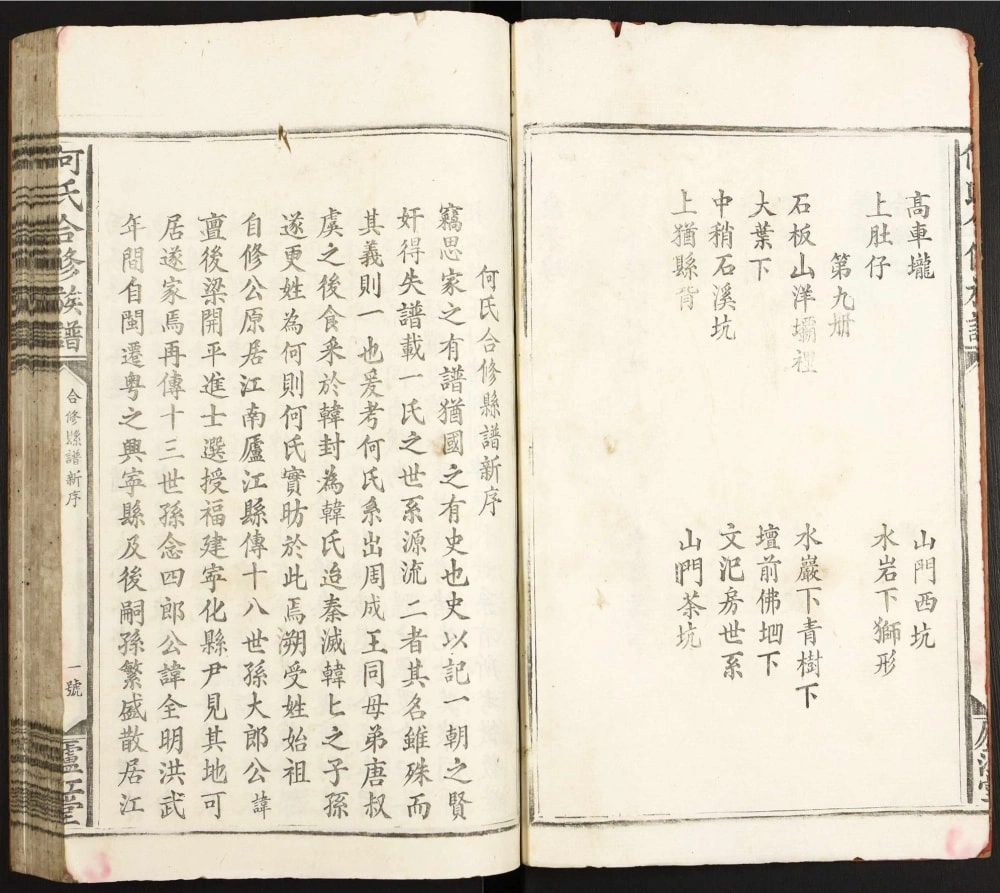 高車壠
山門西坑
上肚仔
水岩下獅形
第九册
石板山洋壩裡
水巖下青樹下
大葉下
壇前佛㘭下
中稍石溪坑
文氾房世系
上猶縣背
山門茶坑
何氏合修縣譜新序
竊思家之有譜猶國之有史也史以記一朝之賢
奸得失譜載一氏之世系源流二者其名雖殊而
其義則一也爰考何氏系出周成王同母弟唐叔
虞之後食采於韓封為韓氏迨秦滅韓匕之子孫
遂更姓為何則何氏實昉於此焉溯受姓始祖
自修公原居江南廬江縣傳十八世孫大郎公諱
亶後梁開平進士選授福建寕化縣尹見其地可
居遂家焉再傳十三世孫念四郎公諱全明洪武
年間自閩遷粤之興寕縣及後嗣孫繁盛散居江
何氏合修族譜
合修縣譜新序
一號
廬江堂